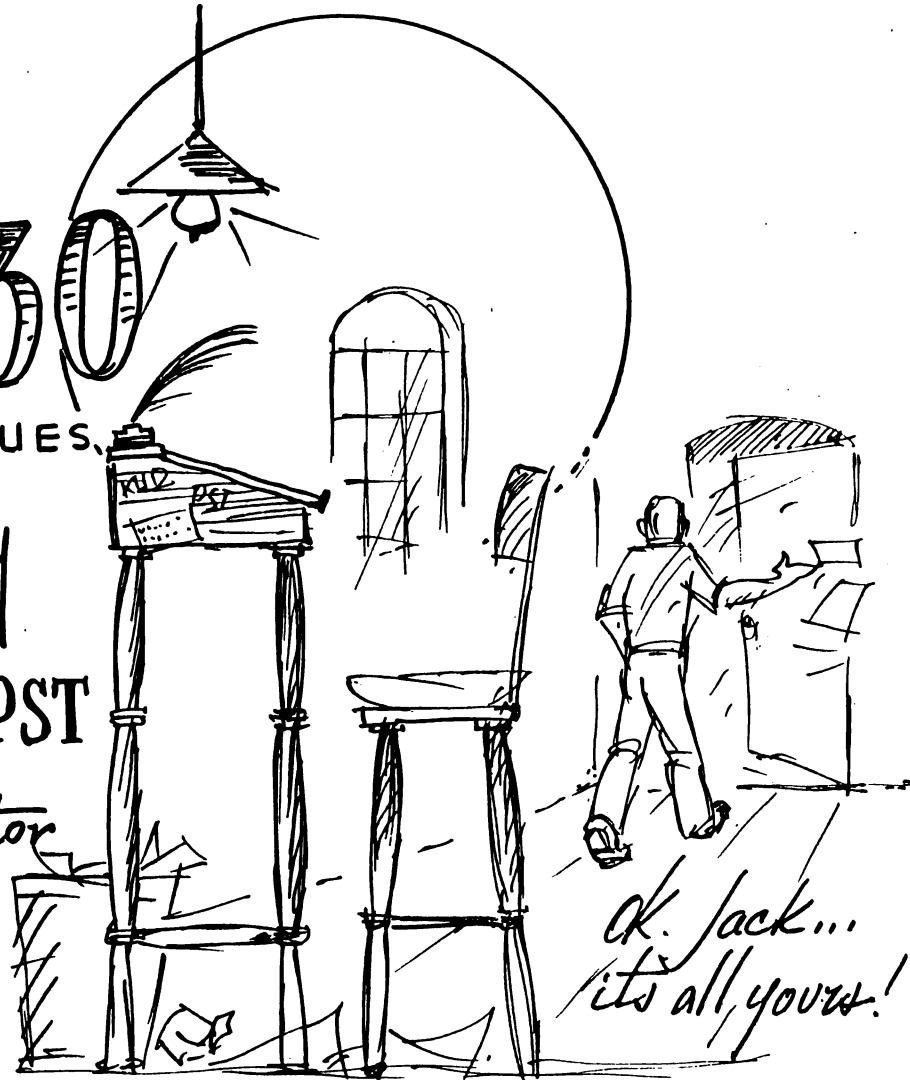 30
UES.
PST
tor
OK. Jack...
it's all yours!